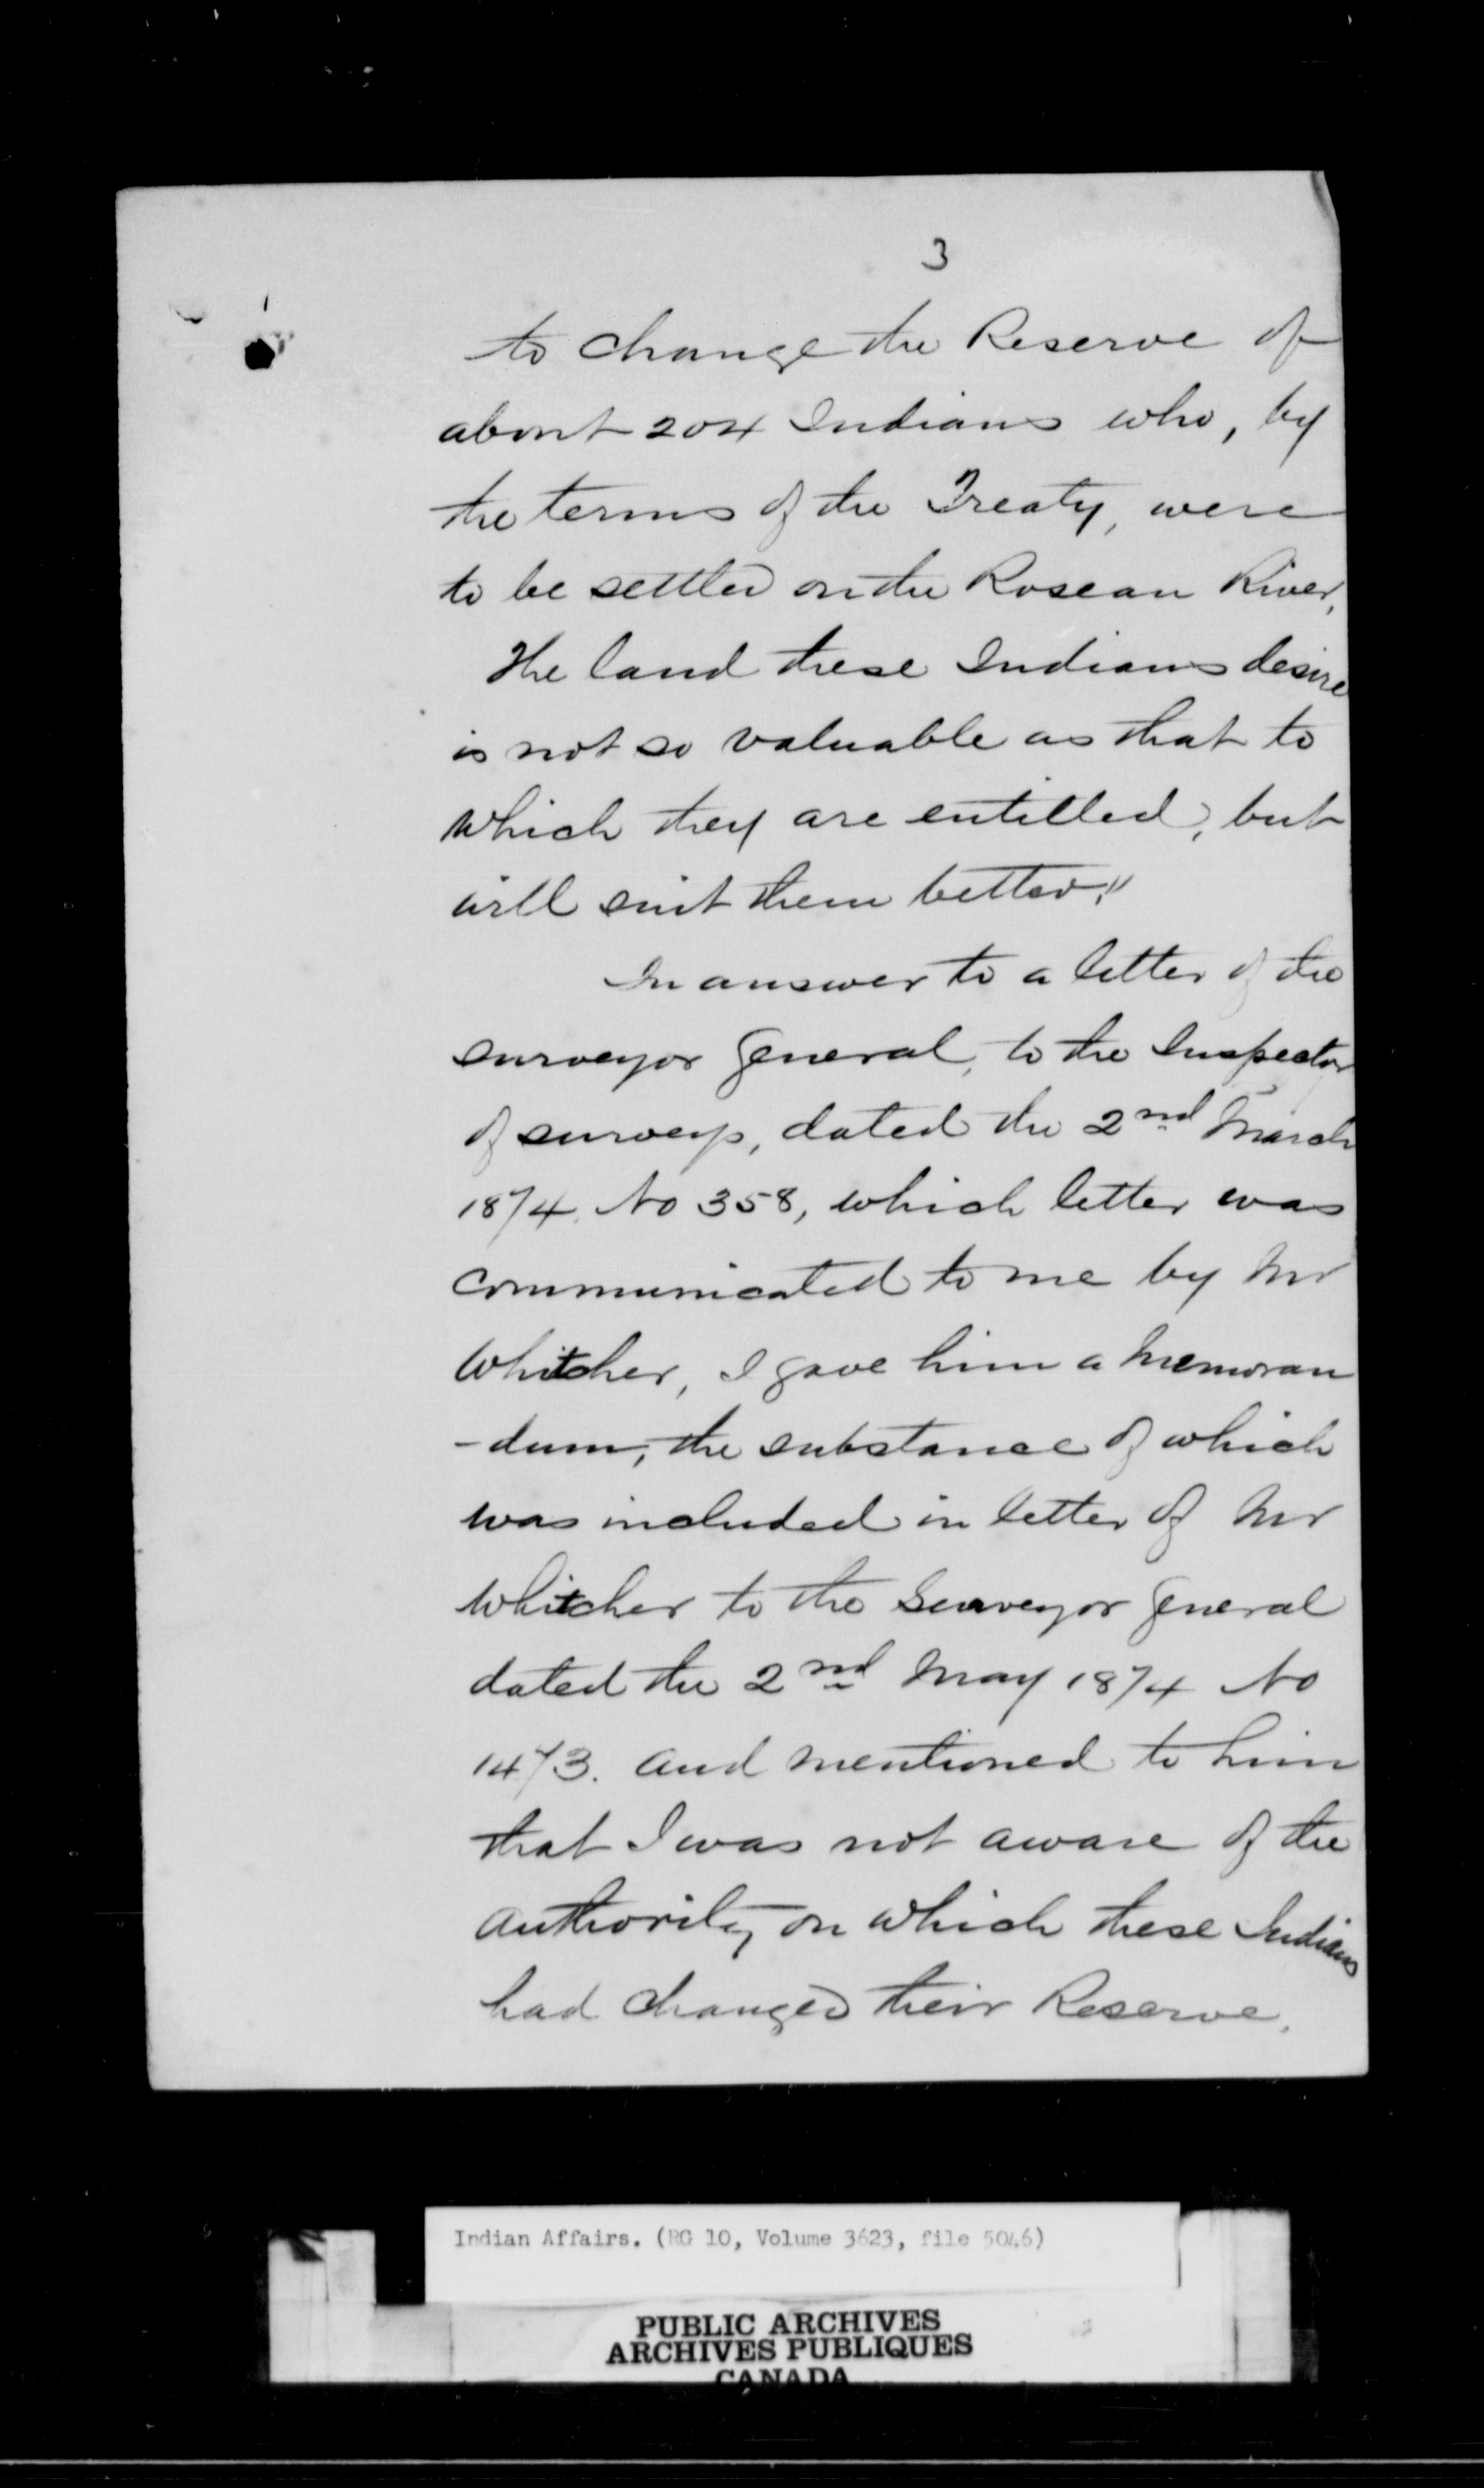 3
to change the Reserve of
about 204 Indians who, by
the terms of the Treaty, were
to be settled on the Roseau River,
The land these Indians desire
is not so valuable as that to
which they are entitled, but
will suit them better."
In answer to a letter of the
surveyor General, to the Inspector
of surveys, dated the 2nd March
1874. No 358, which letter was
communicated to me by Mr
Whitcher, I gave him a Memoran
-dum, the substance of which
was included in letter of Mr
Whitcher to the Surveyor General
dated the 2nd May 1874 No
1473. and mentioned to him
that I was not aware of the
authority on which these Indians
had changed their Reserve.
Indian Affairs. (RG 10, Volume 3623, file 5046)
PUBLIC ARCHIVES
ARCHIVES PUBLIQUES
CANADA